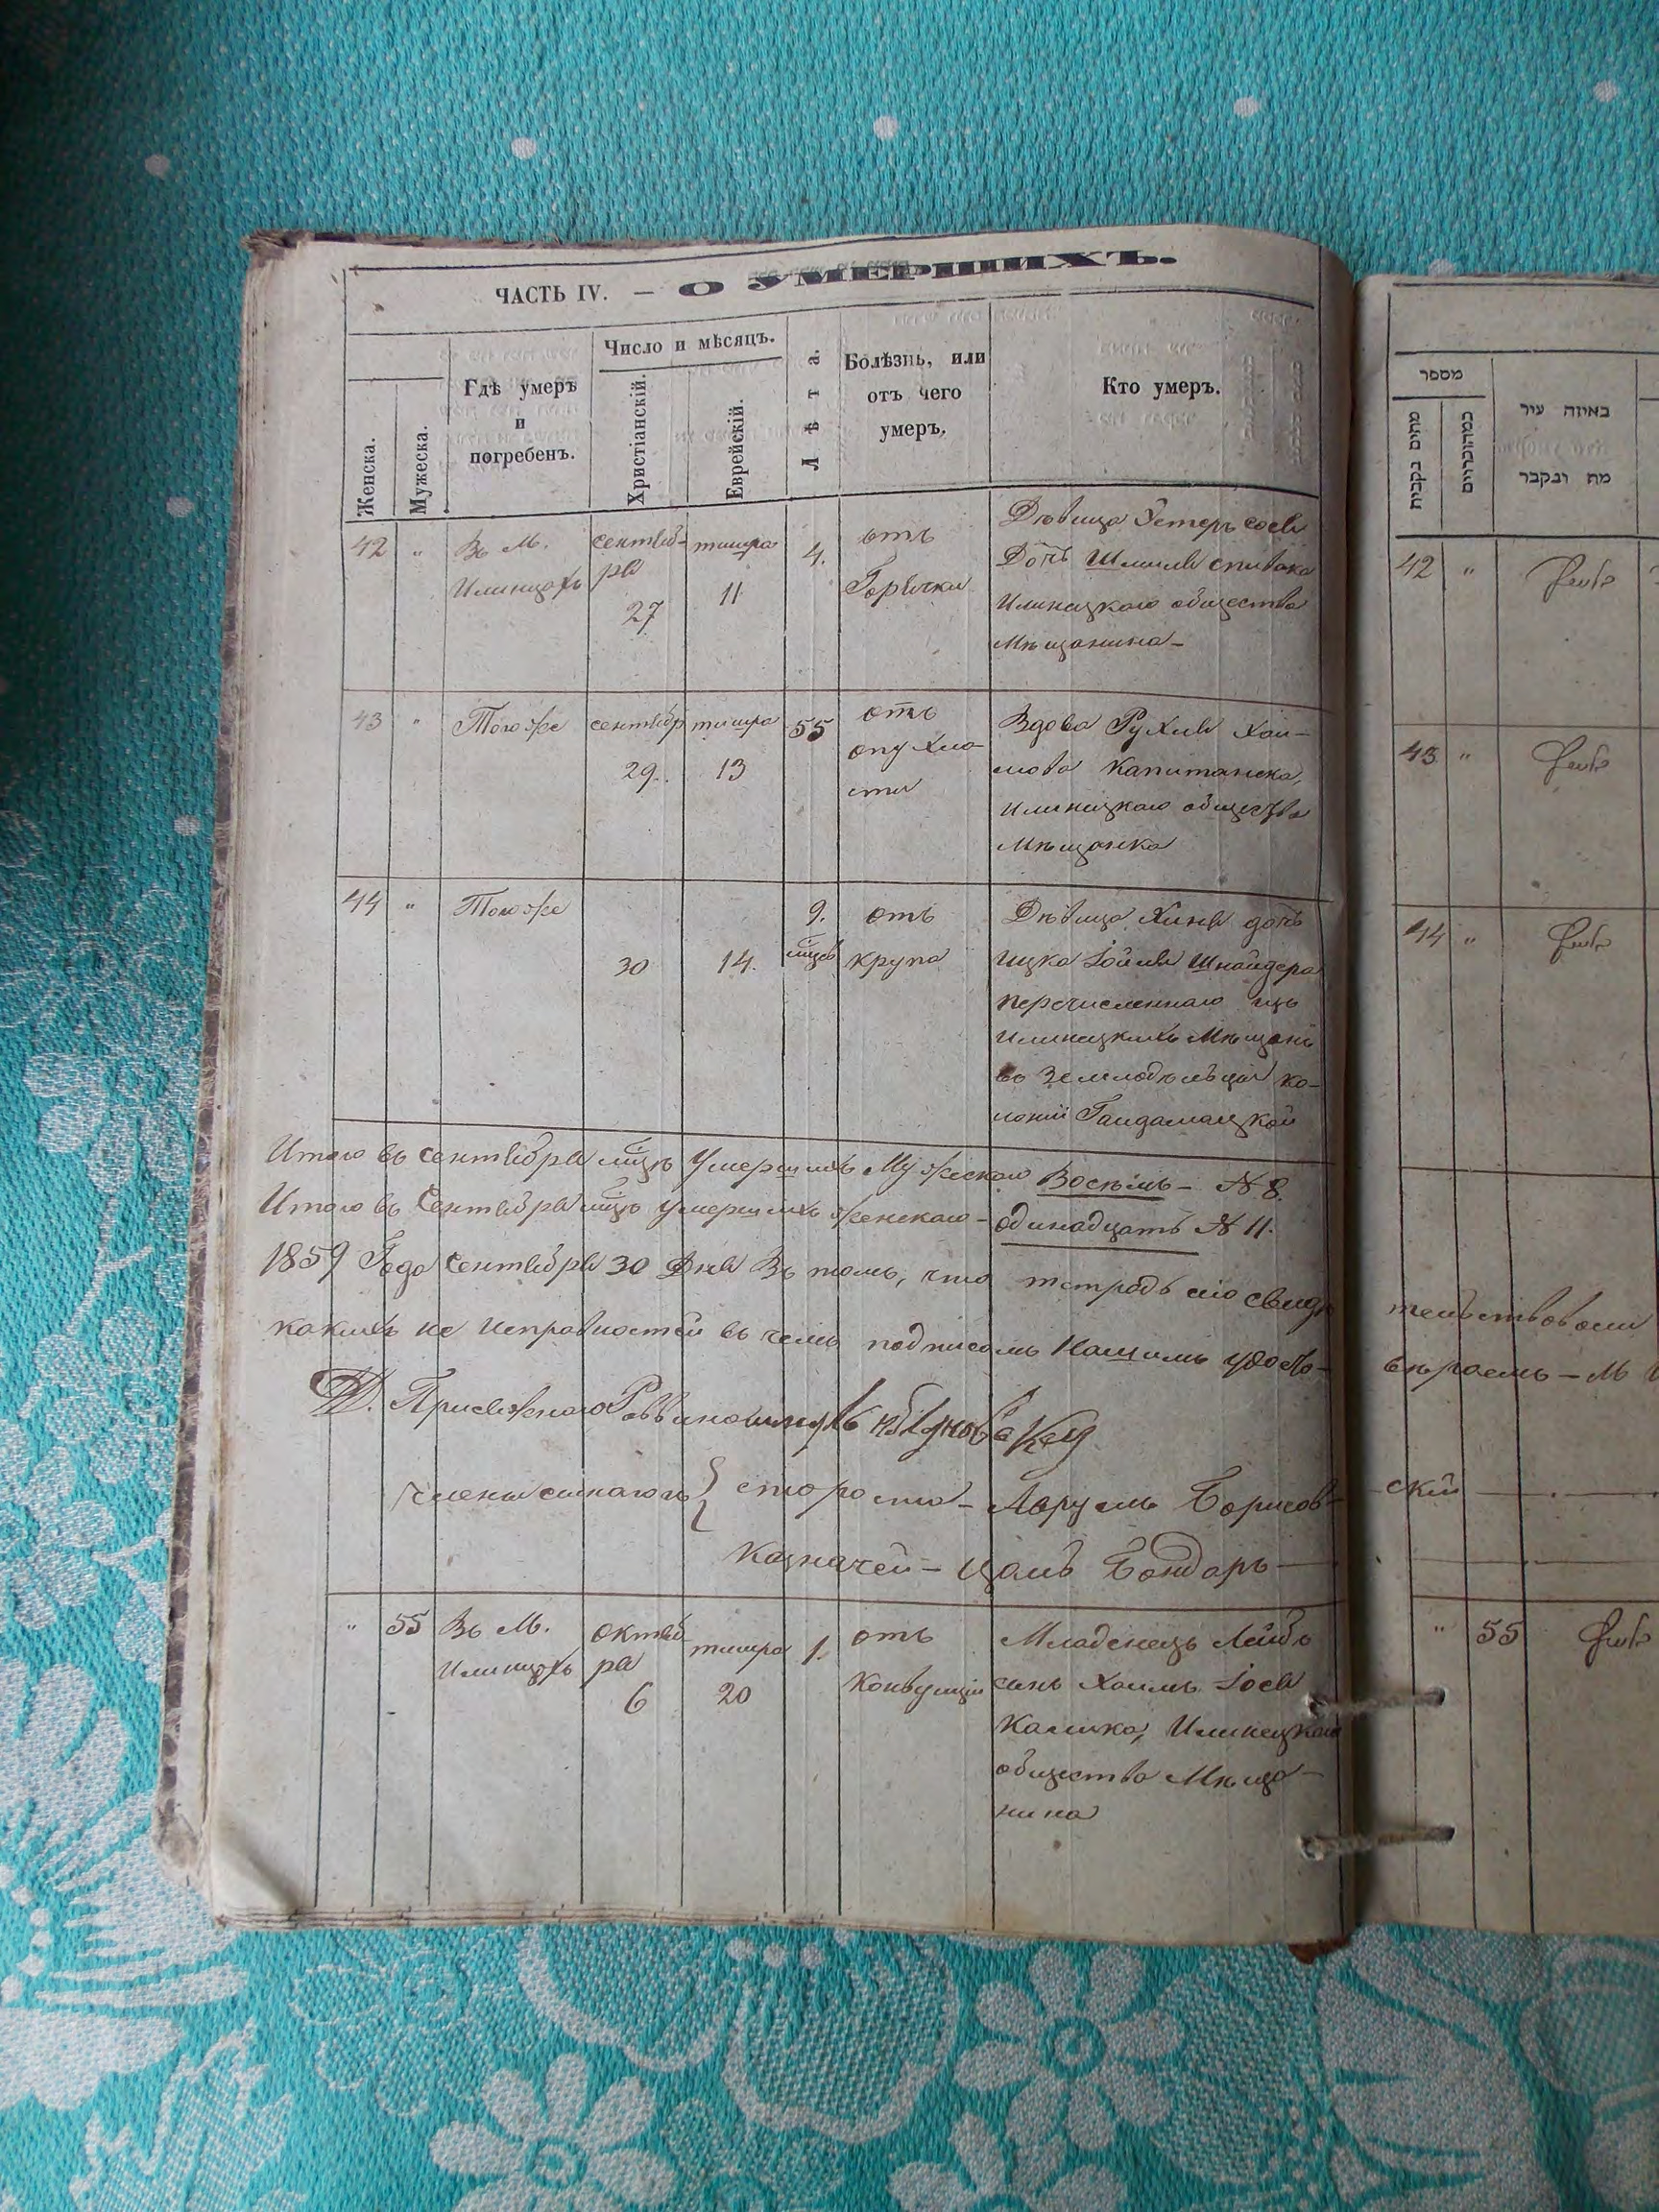 ЧАСТЬ IV. — О УМЕРШИХЪ.
Женска.
Мужеска.
Гдѣ умеръ
и
погребенъ.
Число и мѣсяцъ.
Христіанскій.
Еврейскій.
Лѣта.
Болѣзнь, или
отъ чего
умеръ.
Кто умеръ.
42 " Въ М. Илинцахъ
сентяб-
ря
27
тишра
11
4.
отъ
Горячки
Дѣвица Эстеръ
Дочь Шмиля спивака
Илинецкаго общества
Мѣщанина-
43 " Того же
сентябр
29.
тишра
13
55
отъ
опухло-
сти
Вдова Рухля Хаи-
мова Капитанска,
Илинецкаго общества
Мѣщанка
44 " Того же
30
14.
9.
мцов
отъ
крупа
Дѣвица Хиня дочь
Ицка Шнайдера
перечисленнаго изъ
Илинецкихъ Мѣщанъ
въ ко-
лоніи Гайдамацкой
Итого въ сентябрѣ мцѣ Умершихъ Мужескаго Восѣмь - № 8.
Итого въ Сентябрѣ мцѣ умершихъ женскаго - одинадцать № 11.
1859 Года сентября 30 Дня Въ томъ, что тетрадь сію свидѣ
какихъ не исправностей въ чемъ подписомъ Нашимъ удосто-
Присяжнаго Раввина
староста - Аврумъ Борисов-
Казначей - Бондарь —
" 55 Въ М.
Илинцахъ
октяб
ря
6
тишра
20
1.
отъ
Конвулціи
Младенецъ Лейбъ
сынъ Хаимъ
Калика, Илинецкаго
общества Мѣща-
нина
מספר
באיזה עיר
מת ונקבר
42 "
43 "
44 "
тельствовали
вѣраемъ - М
ский —
" 55